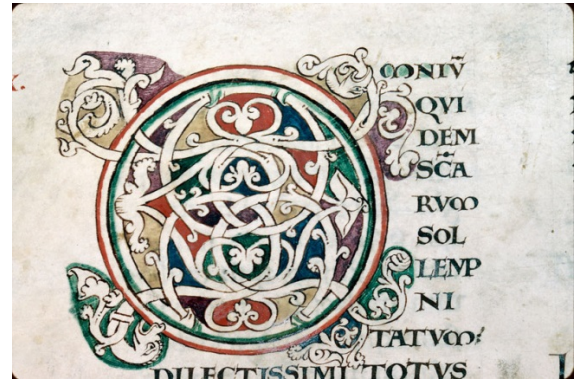 OMNIŪ
QVI
DEM
SC̄A
RVM
SOL
LEMP
NI
TATVM:
DILECTISSIMI TOTVS